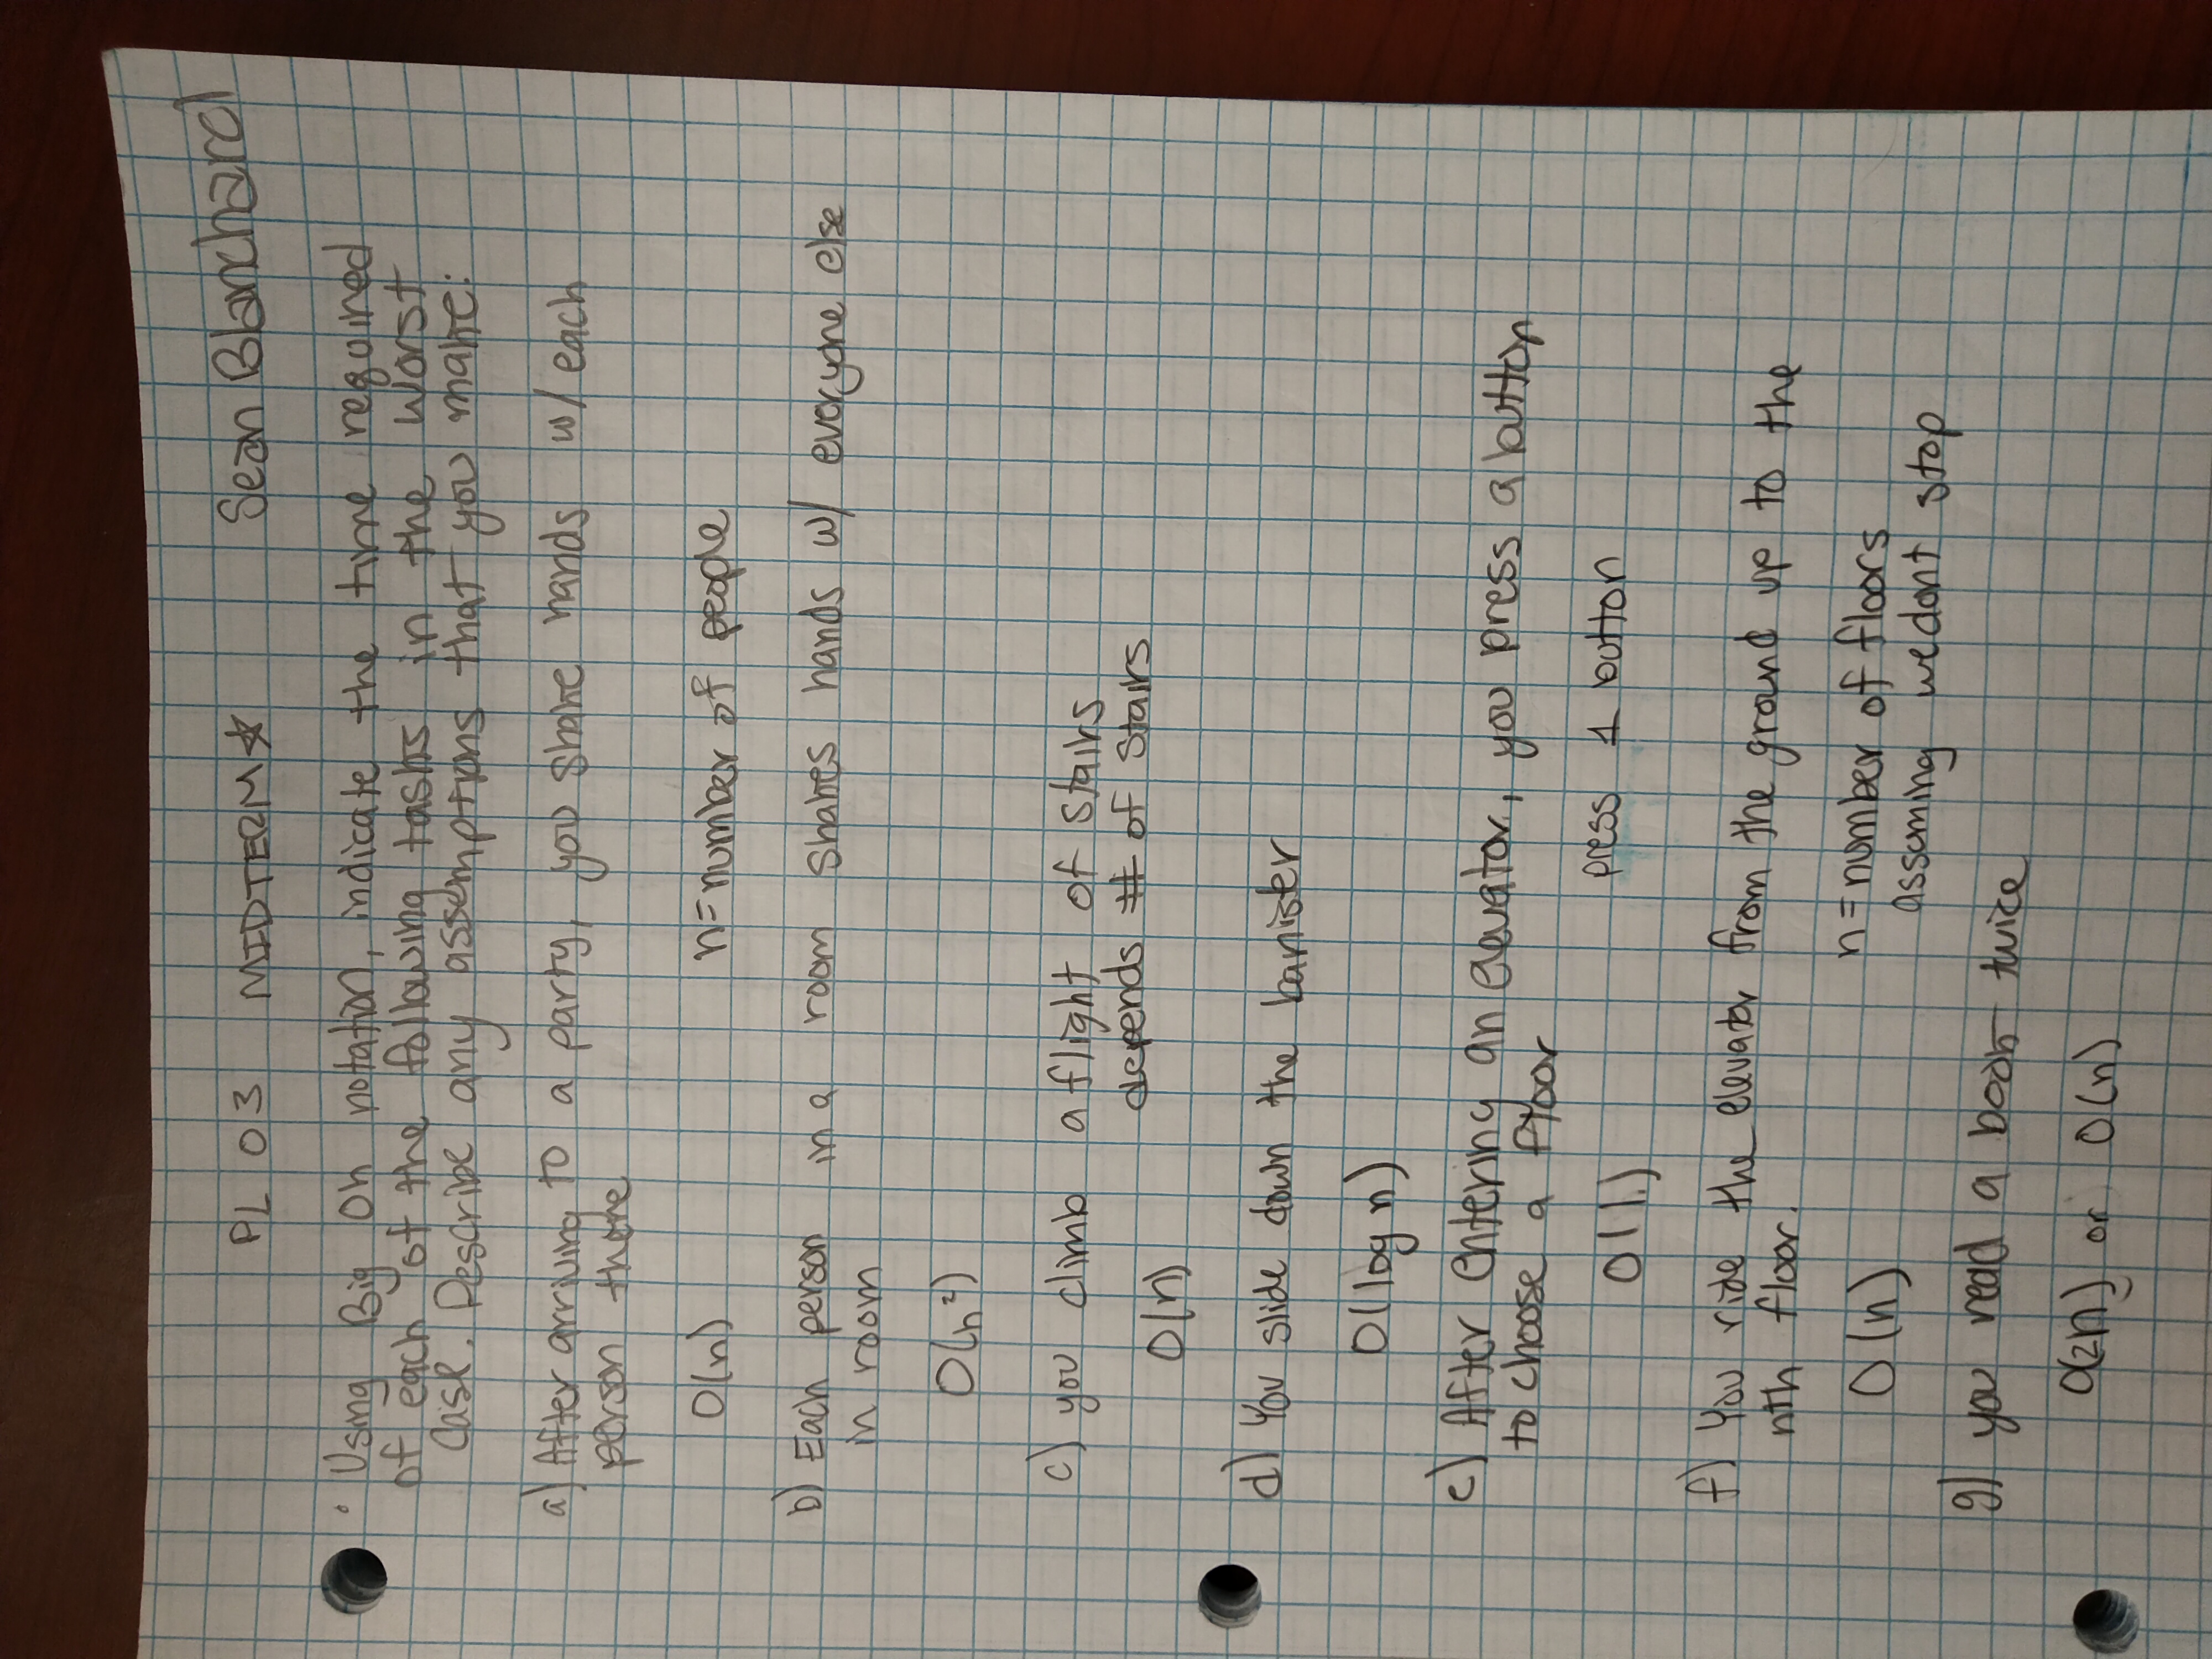 PL 03 MIDTERM☆ Sean Blanchard
• Using Big Oh notation, indicate the time required
of each of the following tasks in the worst
case. Describe any assemptions that you make:
a) After arriving to a party, you shake hands w/ each
person there
O(n) n=number of people
b) Each person in a room shakes hands w/ everyone else
in room
O(n²)
c) you climb a flight of stairs
depends # of stairs
O(n)
d) You slide down the banister
O(log n)
e) After entering an elevator, you press a button
to choose a floor
O(1) press 1 button
f) You ride the elevator from the ground up to the
nth floor.
O(n) n=number of floors
assuming we dont stop
g) you read a book twice
O(2n) or O(n)